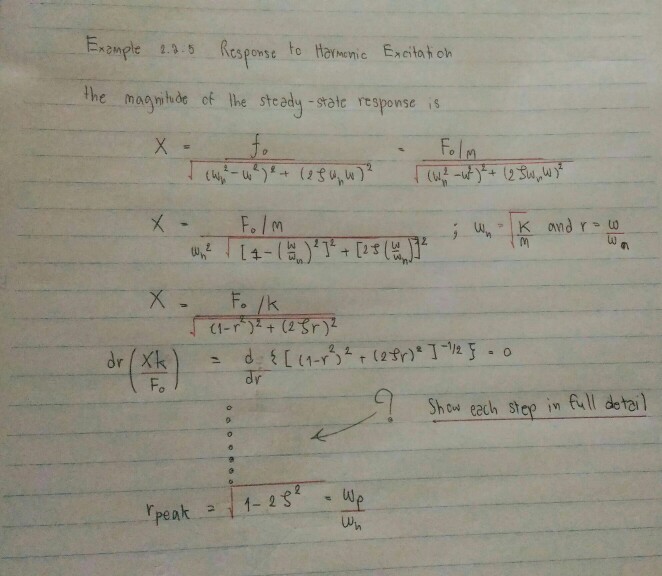 Example 2.2.5 Response to Harmonic Excitation
the magnitude of the steady-state response is
X = f₀ / √((ωn² - ω²)² + (2ζωnω)²) = F₀/m / √((ωn² - ω²)² + (2ζωnω)²)
X = F₀/m / ωn² √([1 - (ω/ωn)²]² + [2ζ(ω/ωn)]²) ; ωn = √(K/m) and r = ω/ωn
X = F₀/k / √((1-r²)² + (2ζr)²)
dr (Xk/F₀) = d/dr {[(1-r²)² + (2ζr)²]^-1/2} = 0
? Show each step in full detail
r peak = √(1 - 2ζ²) = ωp/ωn